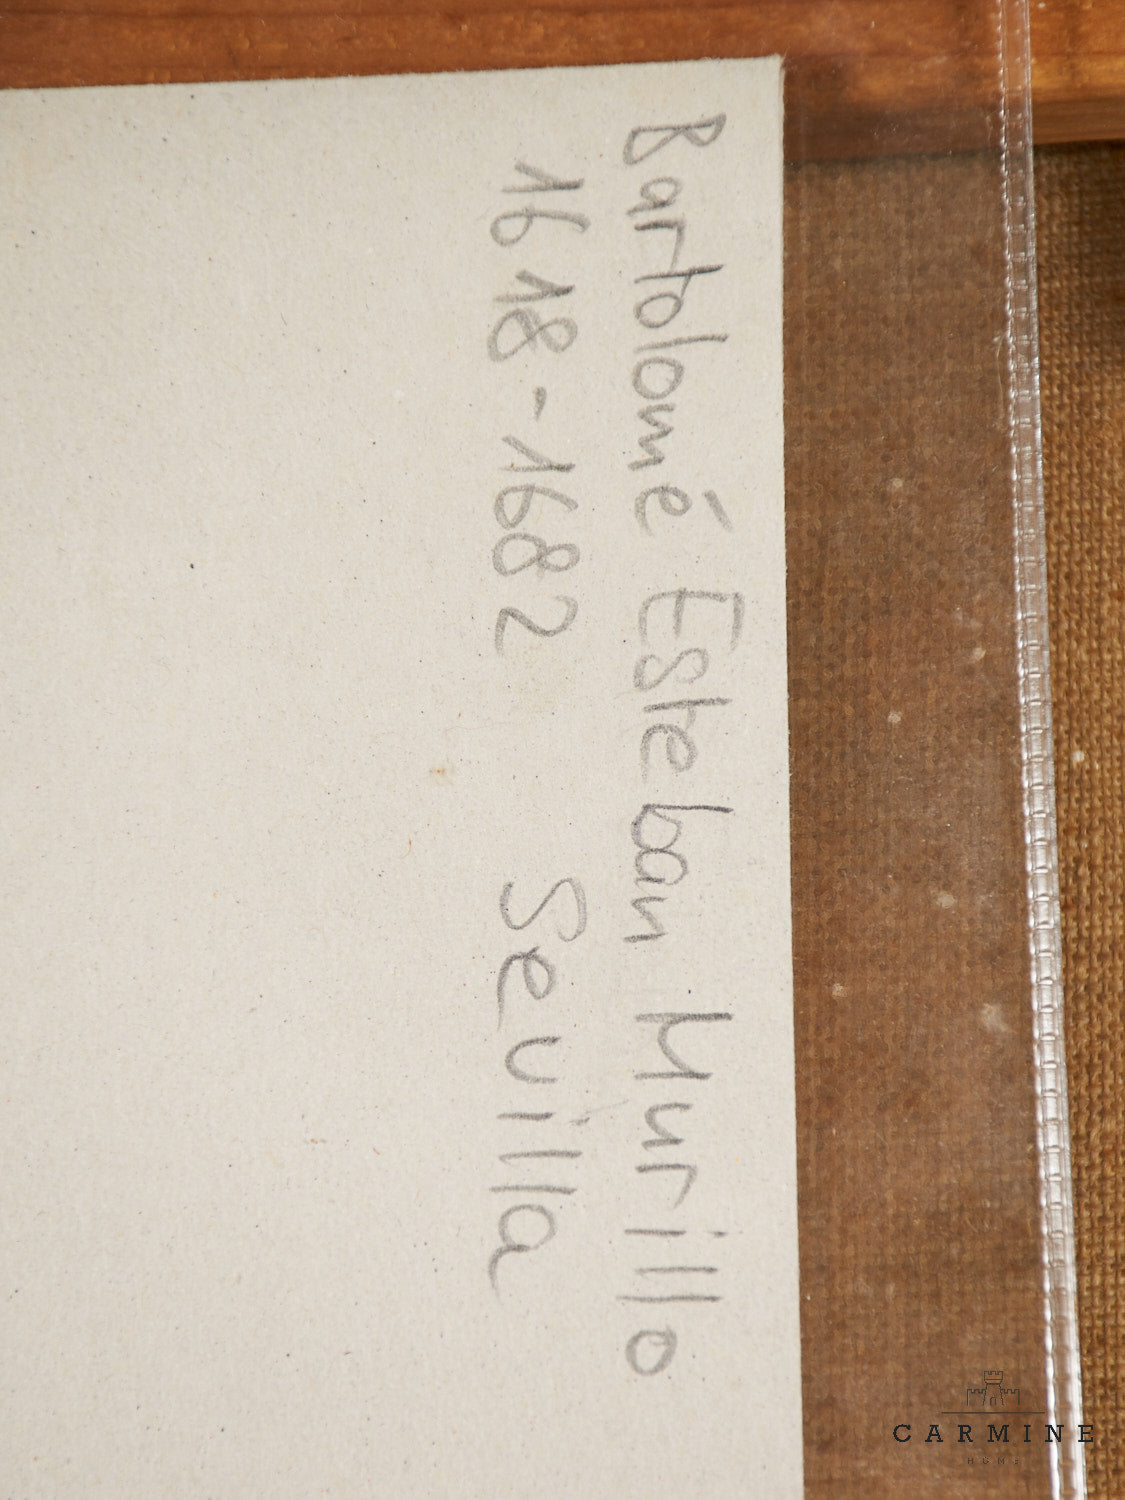 Bartolomé Esteban Murillo
1618-1682 Sevilla
CARMINE
HOME